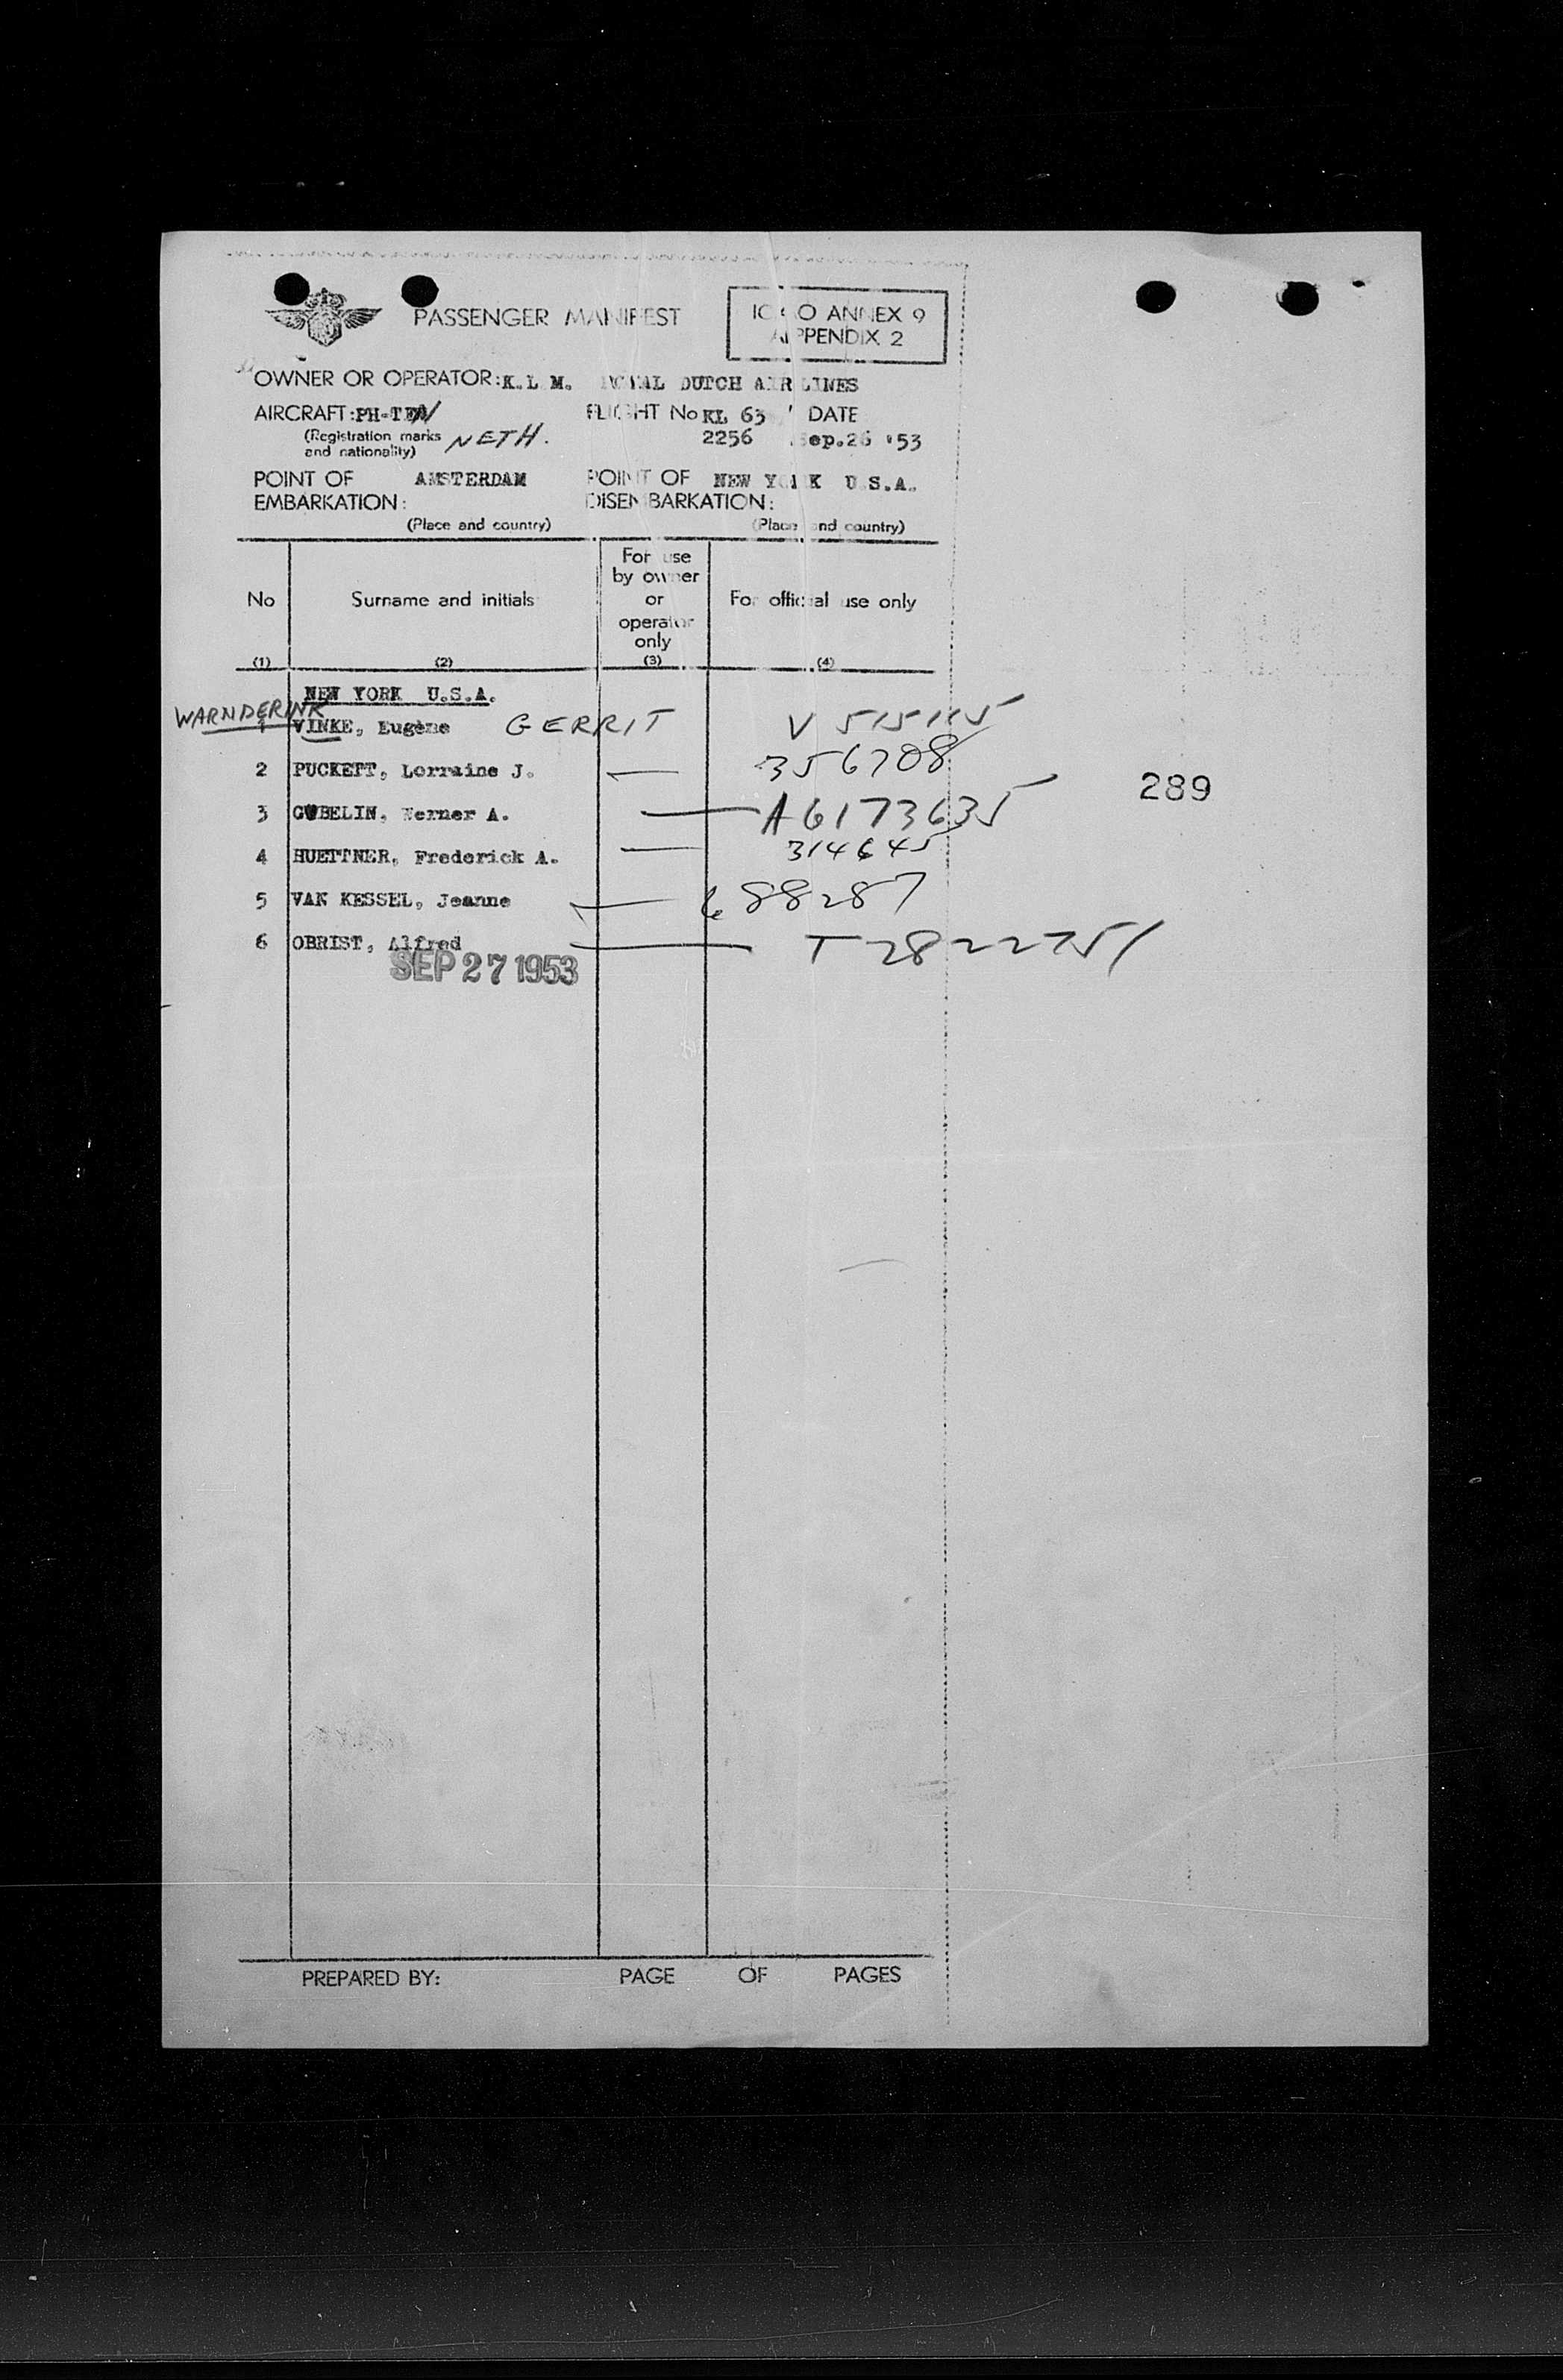 PASSENGER MANIFEST
ICAO ANNEX 9
APPENDIX 2
OWNER OR OPERATOR: K.L.M. ROYAL DUTCH AIRLINES
AIRCRAFT:
(Registration marks and nationality) NETH.
FLIGHT No KL 63 / DATE
2256 Sep.26 '53
POINT OF EMBARKATION: AMSTERDAM
(Place and country)
POINT OF DISEMBARKATION: NEW YORK U.S.A.
(Place and country)
No
(1)
Surname and initials
(2)
For use by owner or operator only
(3)
For official use only
(4)
NEW YORK U.S.A.
WARNDERINK
1 VINKE, Eugène GERRIT V 515115
2 PUCKETT, Lorraine J. — 356708
3 GÜBELIN, Werner A. — A6173635
4 HUETTNER, Frederick A. — 314645
5 VAN KESSEL, Jeanne — 688287
6 OBRIST, Alfred — T
SEP 27 1953
289
PREPARED BY: PAGE OF PAGES